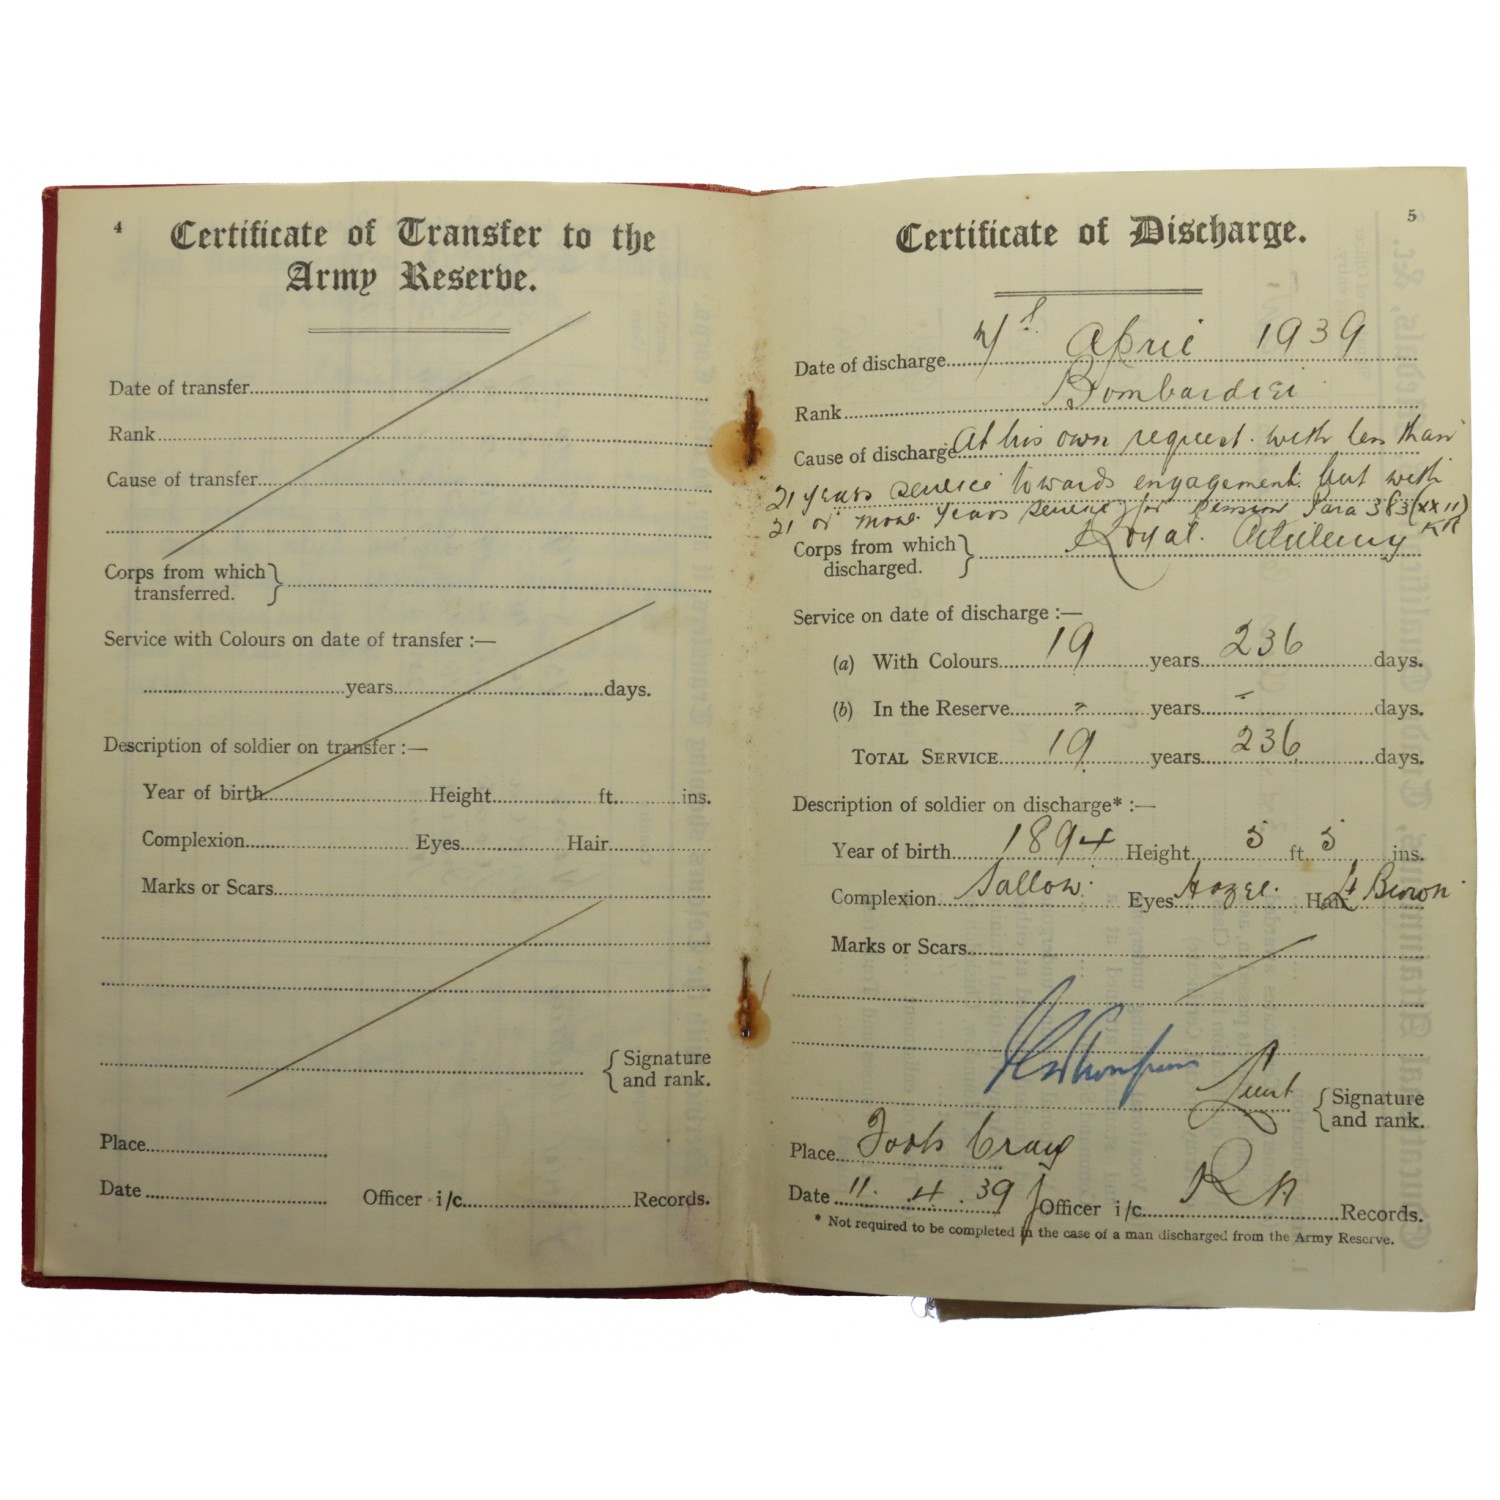 4
Certificate of Transfer to the
Army Reserve.
Date of transfer
Rank
Cause of transfer
Corps from which } transferred.
Service with Colours on date of transfer :—
years days.
Description of soldier on transfer :—
Year of birth Height ft. ins.
Complexion Eyes Hair
Marks or Scars
{ Signature and rank.
Place
Date Officer i/c Records.
5
Certificate of Discharge.
Date of discharge April 1939
Rank Bombardier
Cause of discharge At his own request. with less than
21 years service towards engagement. but with
21 or more years service for Pension Para 383 (XXII)
KR
Corps from which } discharged. Royal Artillery
Service on date of discharge :—
(a) With Colours 19 years 236 days.
(b) In the Reserve - years - days.
TOTAL SERVICE 19 years 236 days.
Description of soldier on discharge* :—
Year of birth 1894 Height 5 ft. 5 ins.
Complexion Sallow. Eyes Hazel. Hair Lt Brown.
Marks or Scars
Thompson Lieut { Signature and rank.
Place Foots Cray
Date 11. 4. 39 Officer i/c RA Records.
* Not required to be completed in the case of a man discharged from the Army Reserve.